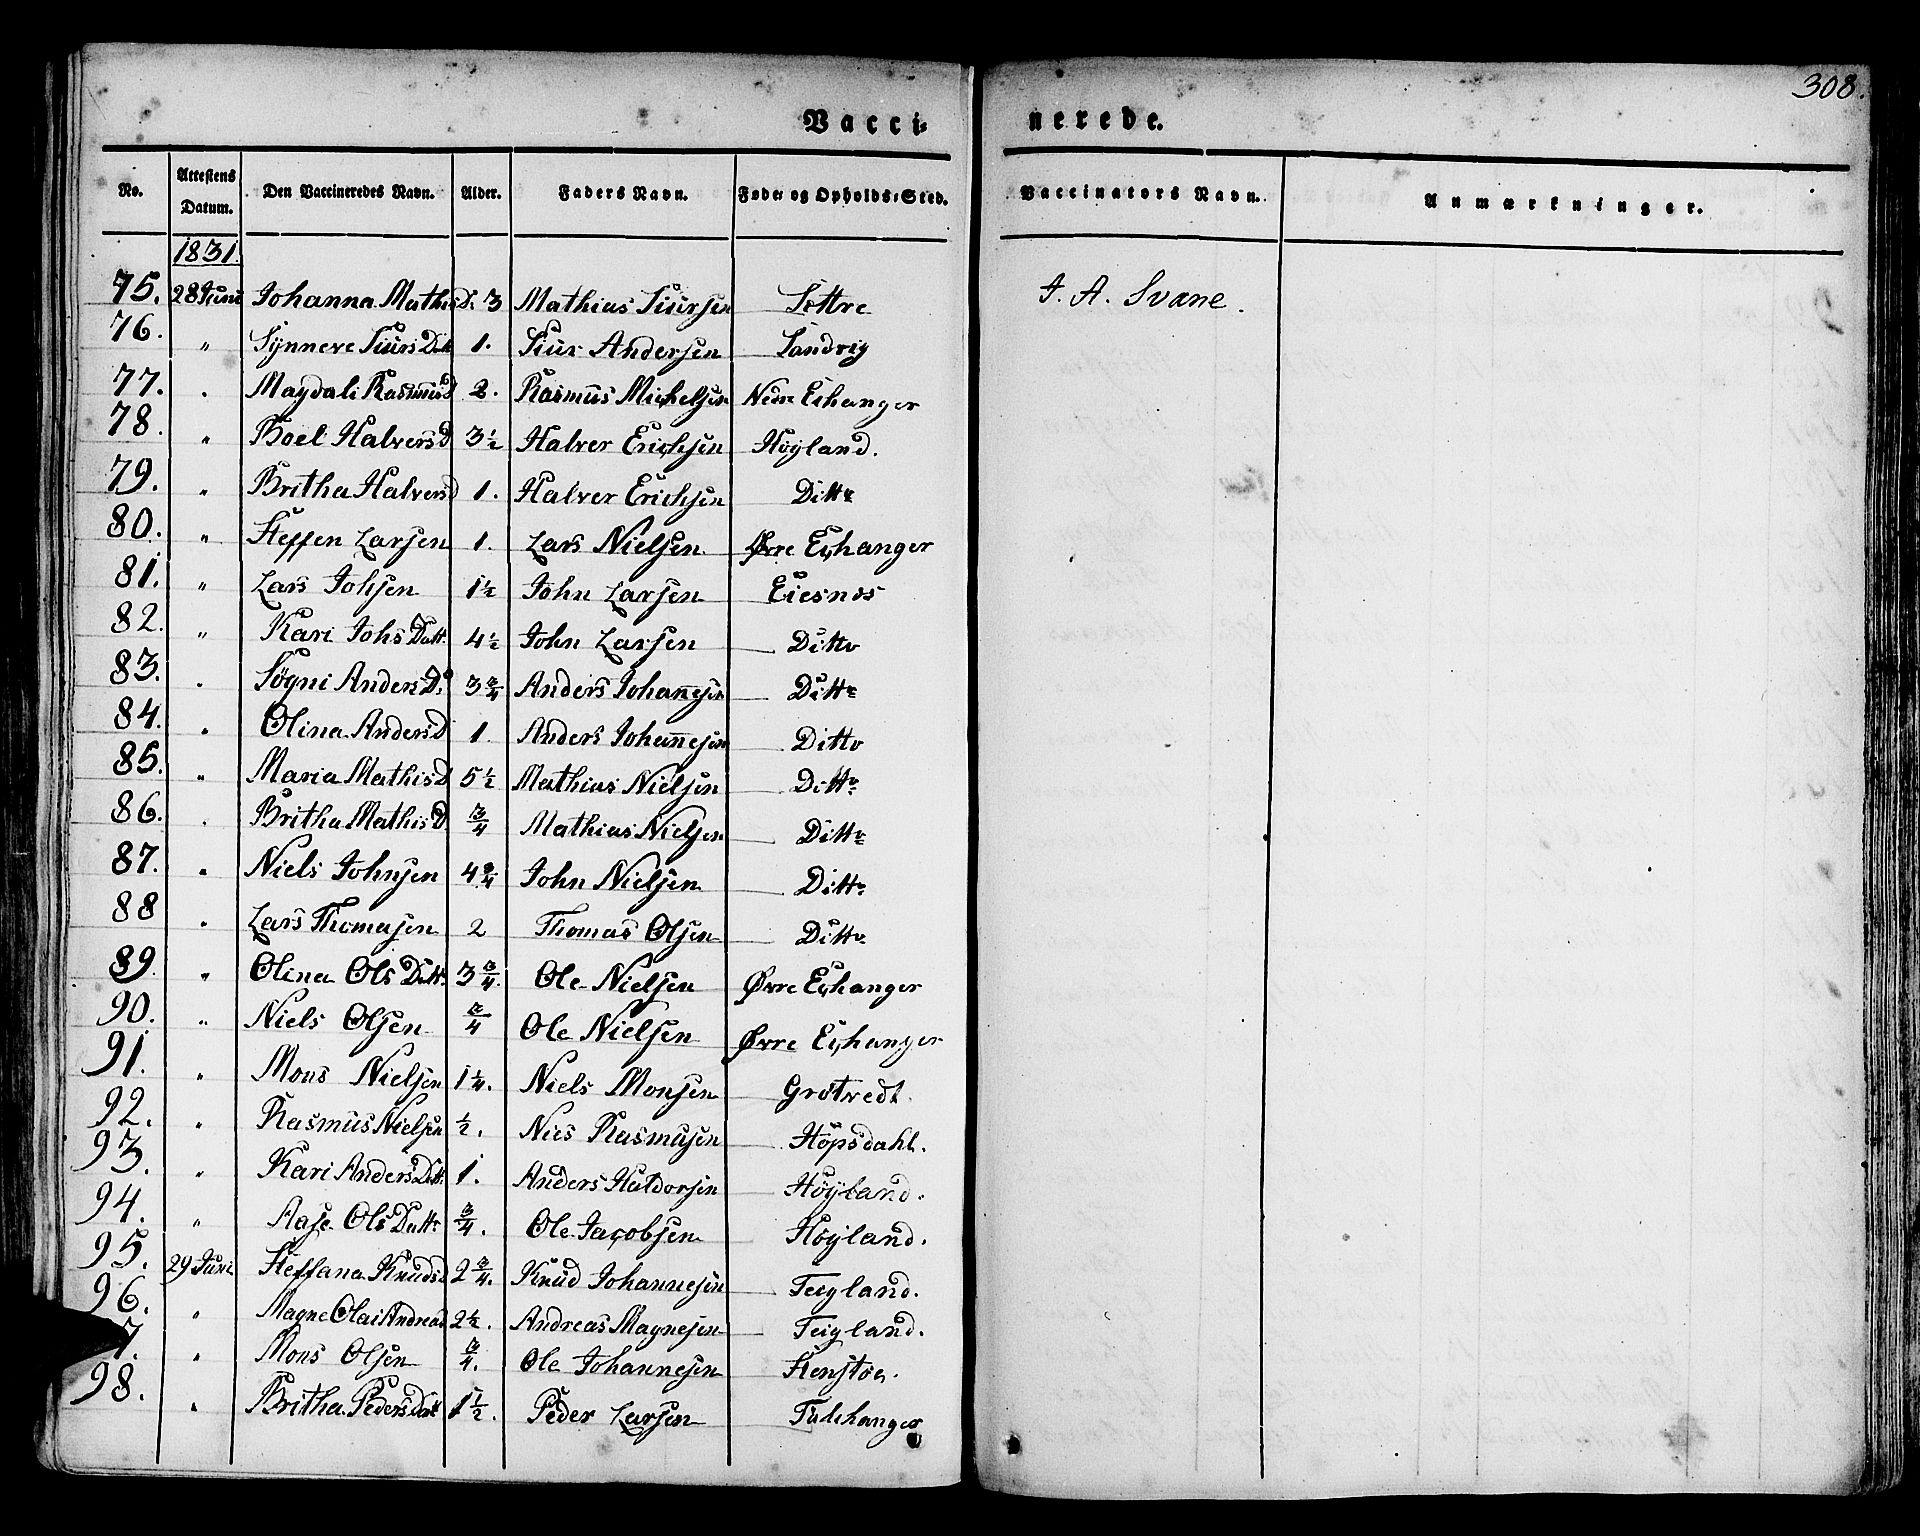 308.
Vacci- nerede.
No. | Attestens Datum. | Den Vaccineredes Navn. | Alder. | Faders Navn. | Føde- og Opholds-Sted. | Vaccinators Navn. | Anmærkninger.
1831.
75. | 28 Juni | Johanna Mathis D. | 3 | Mathias Siursen | Settre | J. A. Svane.
76. | " | Synneve Siurs Datt | 1. | Siur Andersen | Sandvig
77. | " | Magdali Rasmus D | 2. | Rasmus Michelsen | Nedre Eihanger
78. | " | Boel Halvers D | 3 1/2 | Halver Erichsen | Høyland.
79. | " | Britha Halvers D | 1. | Halver Erichsen | Ditto
80. | " | Steffen Larsen | 1. | Lars Nielsen | Øvre Eihanger
81. | " | Lars Johsen | 1 1/2 | John Larsen | Eiesnes
82. | " | Kari Johs Datt. | 4 1/2 | John Larsen | Ditto
83. | " | Søgni Anders D. | 3 3/4 | Anders Johannesen | Ditto
84. | " | Olina Anders D | 1. | Anders Johannesen | Ditto
85. | " | Maria Mathis D | 5 1/2 | Mathias Nielsen | Ditto
86. | " | Britha Mathis D. | 3/4 | Mathias Nielsen | Ditto
87. | " | Niels Johnsen | 4 3/4 | John Nielsen | Ditto
88 | " | Lars Thomasen | 2 | Thomas Olsen | Ditto
89. | " | Olina Ols Datt. | 3 3/4. | Ole Nielsen | Øvre Eihanger
90. | " | Niels Olsen | 3/4 | Ole Nielsen | Øvre Eihanger
91. | " | Mons Nielsen | 1 1/4. | Niels Monsen | Grotvedt.
92. | " | Rasmus Nielsen | 1/2. | Niels Rasmusen | Hopsdahl.
93. | " | Kari Anders Datt. | 1. | Anders Haldorsen | Høyland.
94. | " | Aase Ols Datt. | 3/4. | Ole Jacobsen | Høyland.
95. | 29 Juni. | Steffana Knuds D | 2 3/4. | Knud Johannesen | Teigland.
96. | " | Magne Olai Andreas | 2 1/2. | Andreas Magnesen | Teigland.
7. | " | Mons Olsen | 3/4. | Ole Johannesen | Stenstøe.
98. | " | Britha Peders Datt | 1 1/2. | Peder Larsen